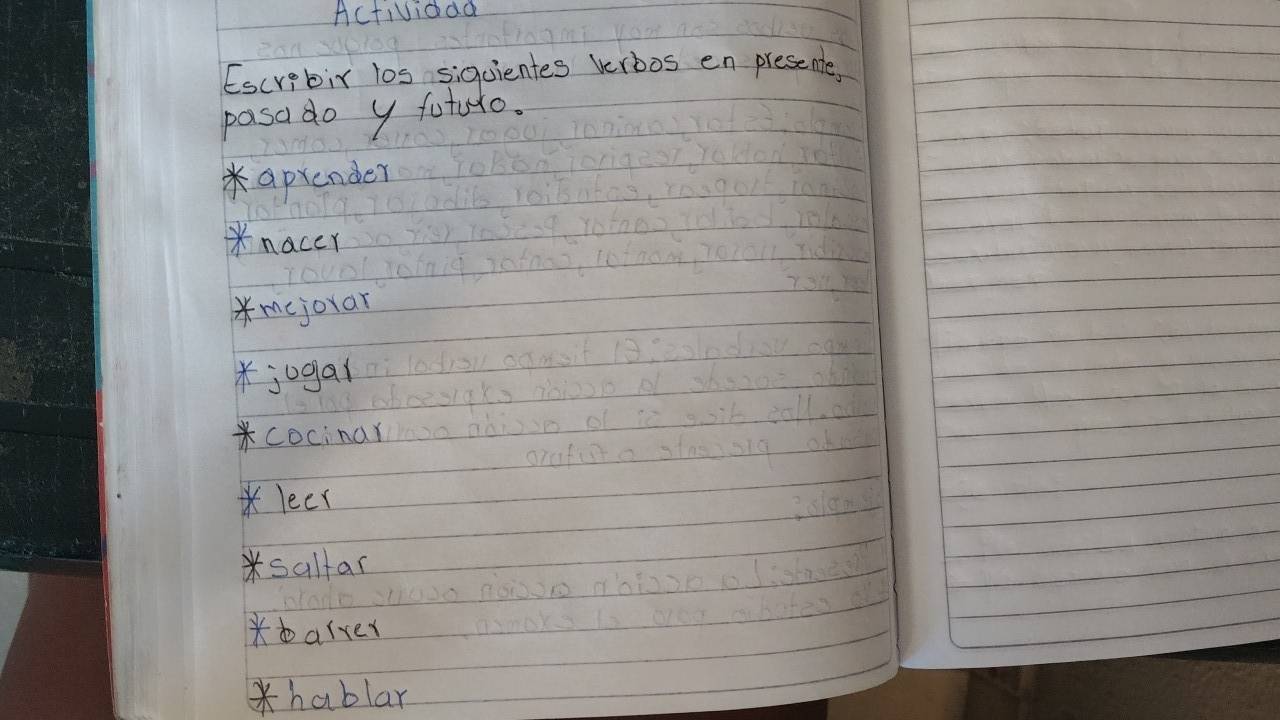 Actividad
Escribir los siguientes verbos en presente,
pasado y futuro.
* aprender
* nacer
* mejorar
* jugar
* cocinar
* leer
* saltar
* barrer
* hablar